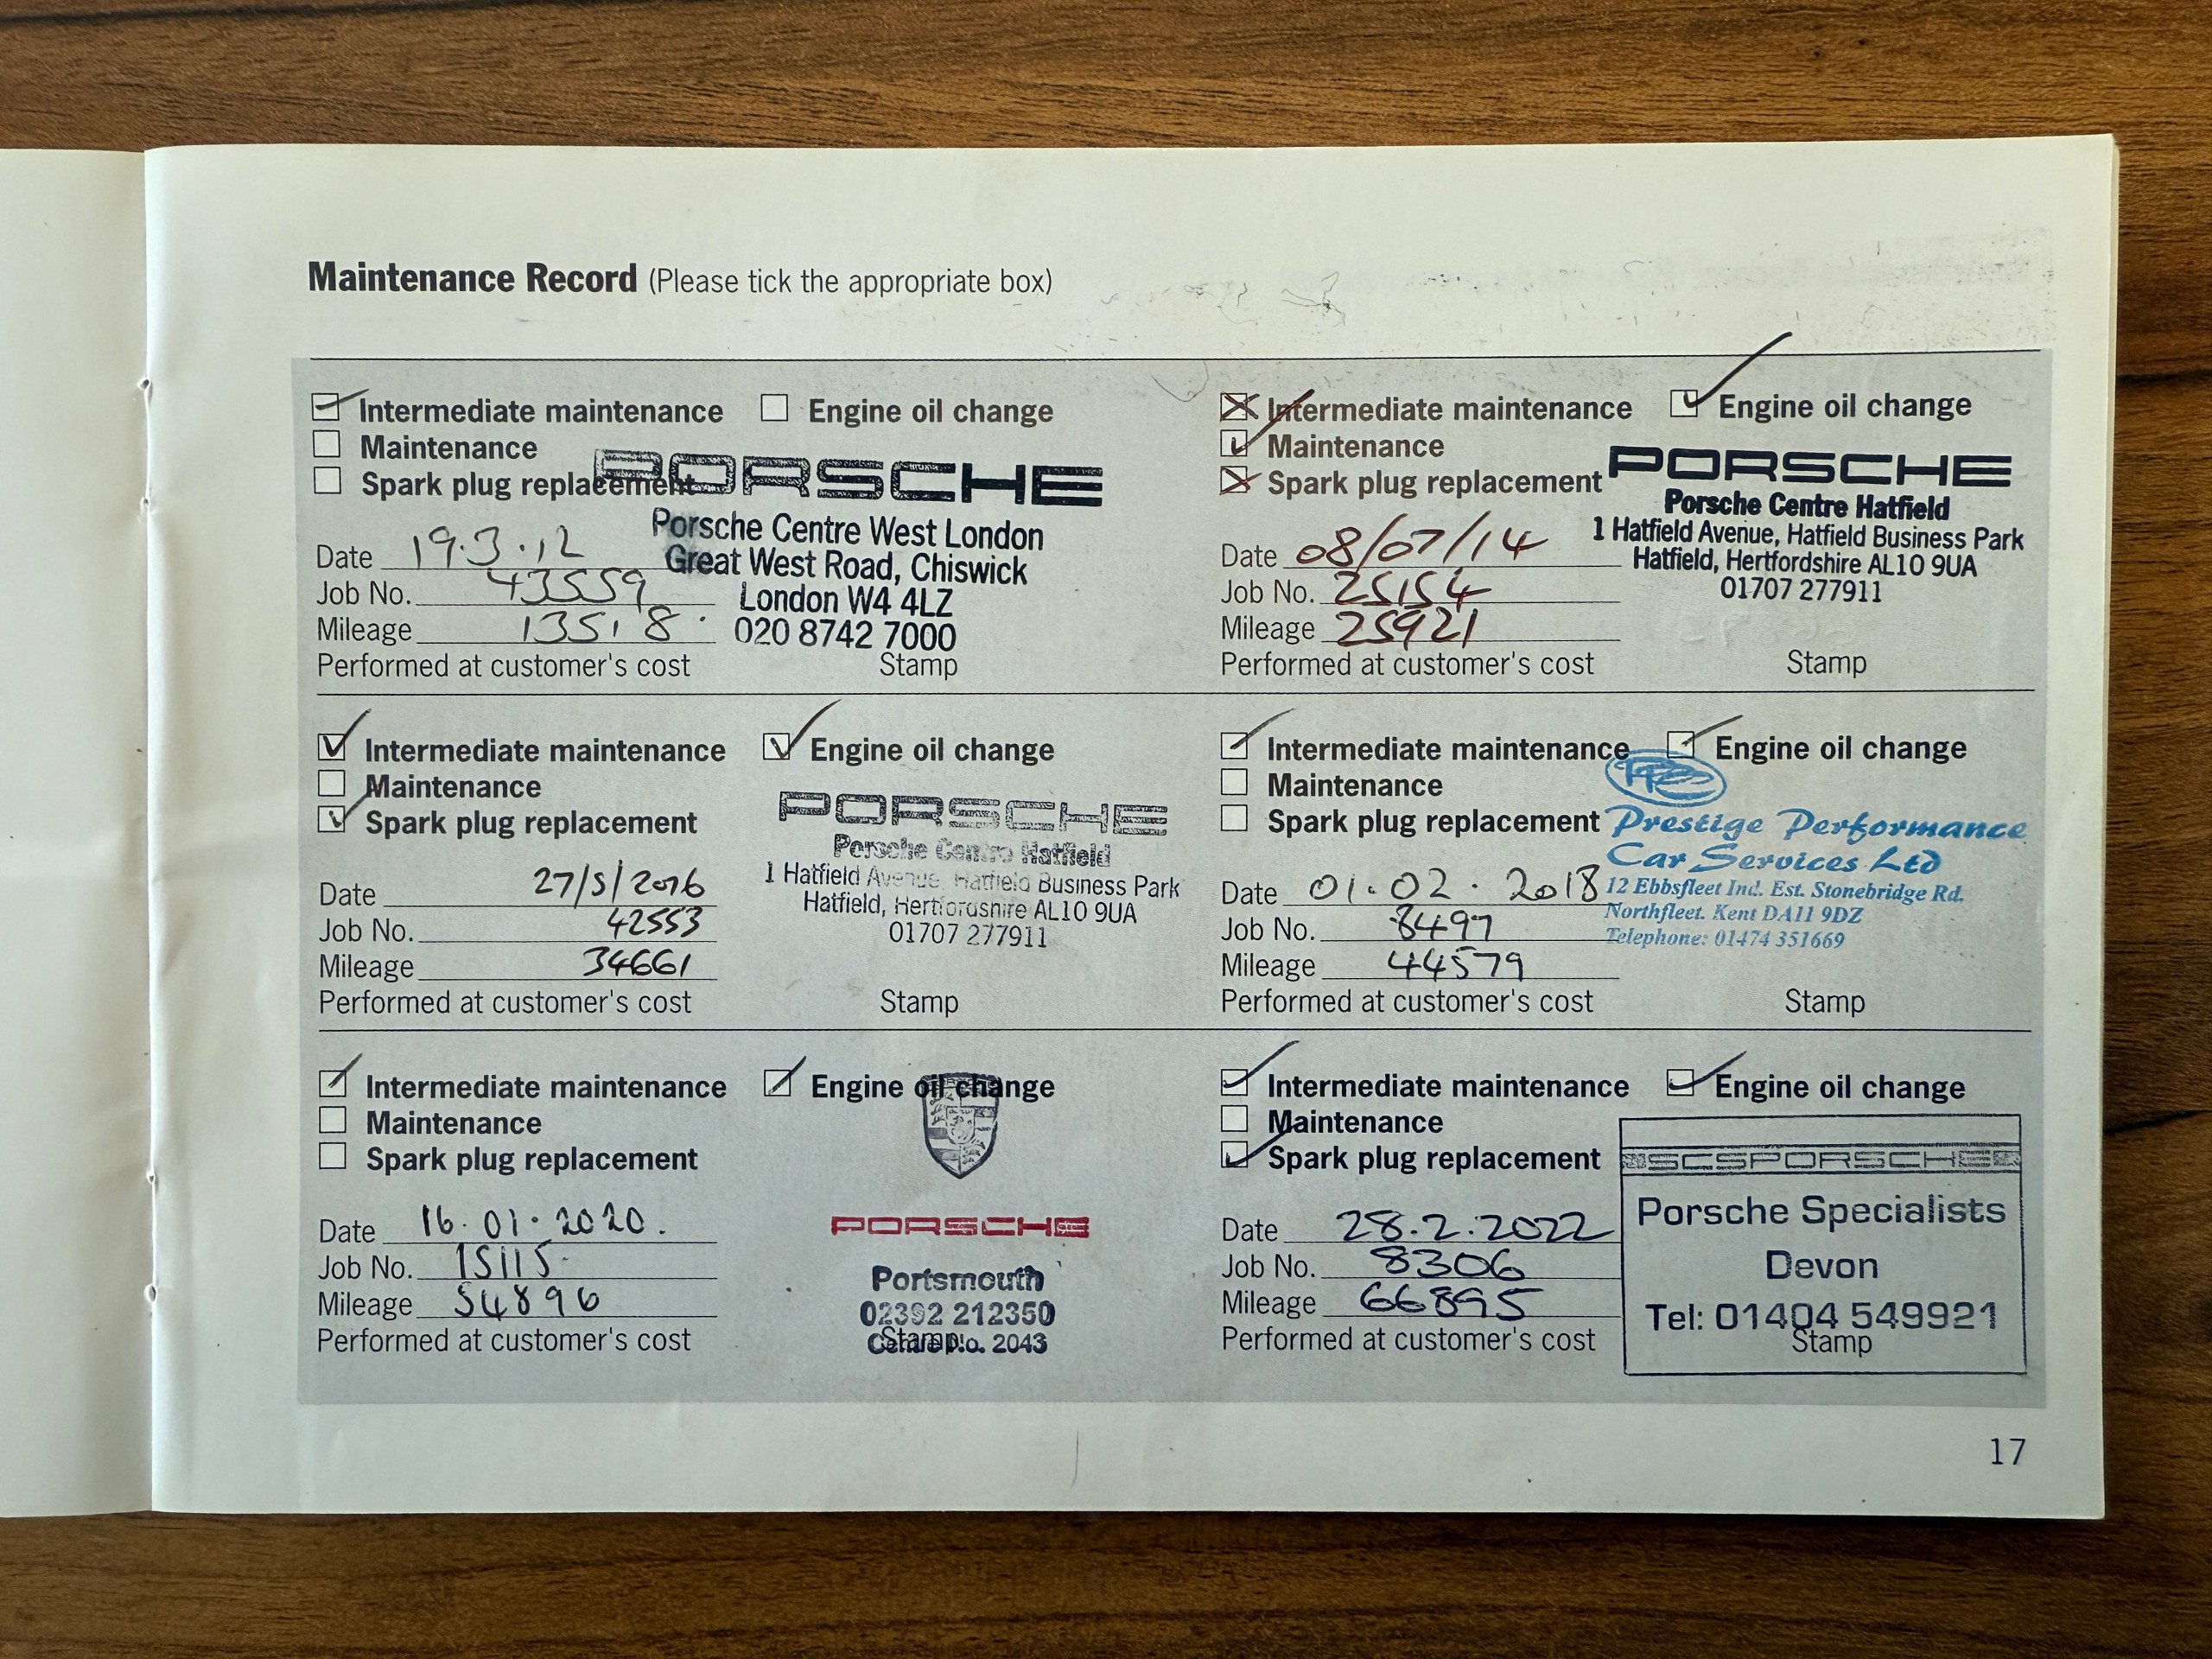 Maintenance Record (Please tick the appropriate box)
Intermediate maintenance Engine oil change
Maintenance
Spark plug replacement
PORSCHE
Porsche Centre West London
Great West Road, Chiswick
London W4 4LZ
020 8742 7000
Date 19.3.12
Job No. 43559
Mileage 13518
Performed at customer's cost Stamp
Intermediate maintenance Engine oil change
Maintenance
Spark plug replacement
PORSCHE
Porsche Centre Hatfield
1 Hatfield Avenue, Hatfield Business Park
Hatfield, Hertfordshire AL10 9UA
01707 277911
Date 08/07/14
Job No. 25154
Mileage 25921
Performed at customer's cost Stamp
Intermediate maintenance Engine oil change
Maintenance
Spark plug replacement
PORSCHE
Porsche Centre Hatfield
1 Hatfield Avenue, Hatfield Business Park
Hatfield, Hertfordshire AL10 9UA
01707 277911
Date 27/5/2016
Job No. 42553
Mileage 34661
Performed at customer's cost Stamp
Intermediate maintenance Engine oil change
Maintenance
Spark plug replacement
Prestige Performance
Car Services Ltd
12 Ebbsfleet Ind. Est. Stonebridge Rd.
Northfleet. Kent DA11 9DZ
Telephone: 01474 351669
Date 01.02.2018
Job No. 8497
Mileage 44579
Performed at customer's cost Stamp
Intermediate maintenance Engine oil change
Maintenance
Spark plug replacement
PORSCHE
Portsmouth
02392 212350
Centre No. 2043
Date 16.01.2020.
Job No. 15115
Mileage 54896
Performed at customer's cost Stamp
Intermediate maintenance Engine oil change
Maintenance
Spark plug replacement
SCSPORSCHE
Porsche Specialists
Devon
Tel: 01404 549921
Date 28.2.2022
Job No. 8306
Mileage 66895
Performed at customer's cost Stamp
17